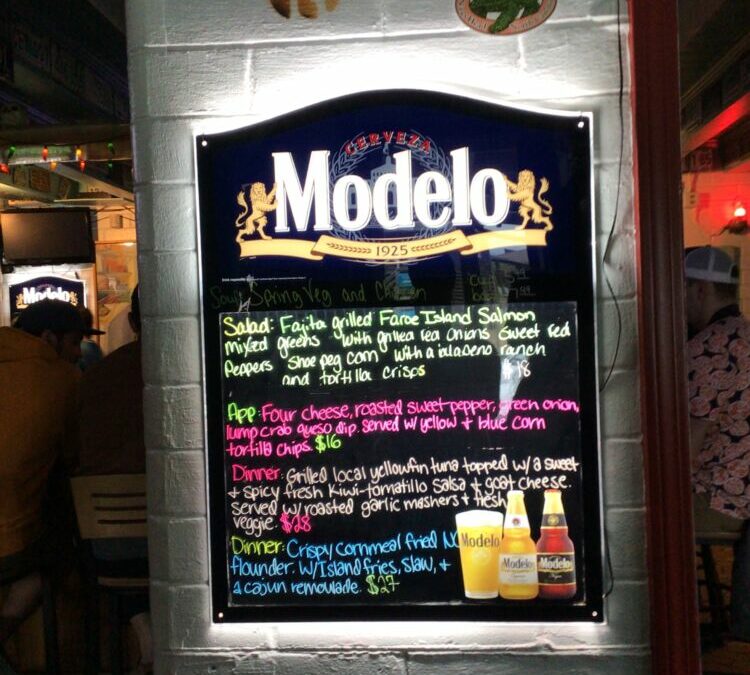 CERVEZA
Modelo
1925
Soup: Spring Veg and Chicken
Salad: Fajita grilled Faroe Island Salmon
Mixed greens with grilled red onions sweet red
Peppers shoe peg corn with a jalapeno ranch
and tortilla crisps $18
App: Four cheese, roasted sweet pepper, green onion,
lump crab queso dip. served w/ yellow + blue corn
tortilla chips. $16
Dinner: Grilled local yellowfin tuna topped w/ a sweet
+ spicy fresh kiwi-tomatillo salsa + goat cheese.
Served w/ roasted garlic mashers + fresh
veggie. $28
Dinner: Crispy cornmeal fried NC
flounder. W/ Island fries, slaw, +
a cajun remoulade. $27
Modelo
Modelo
Modelo
Modelo